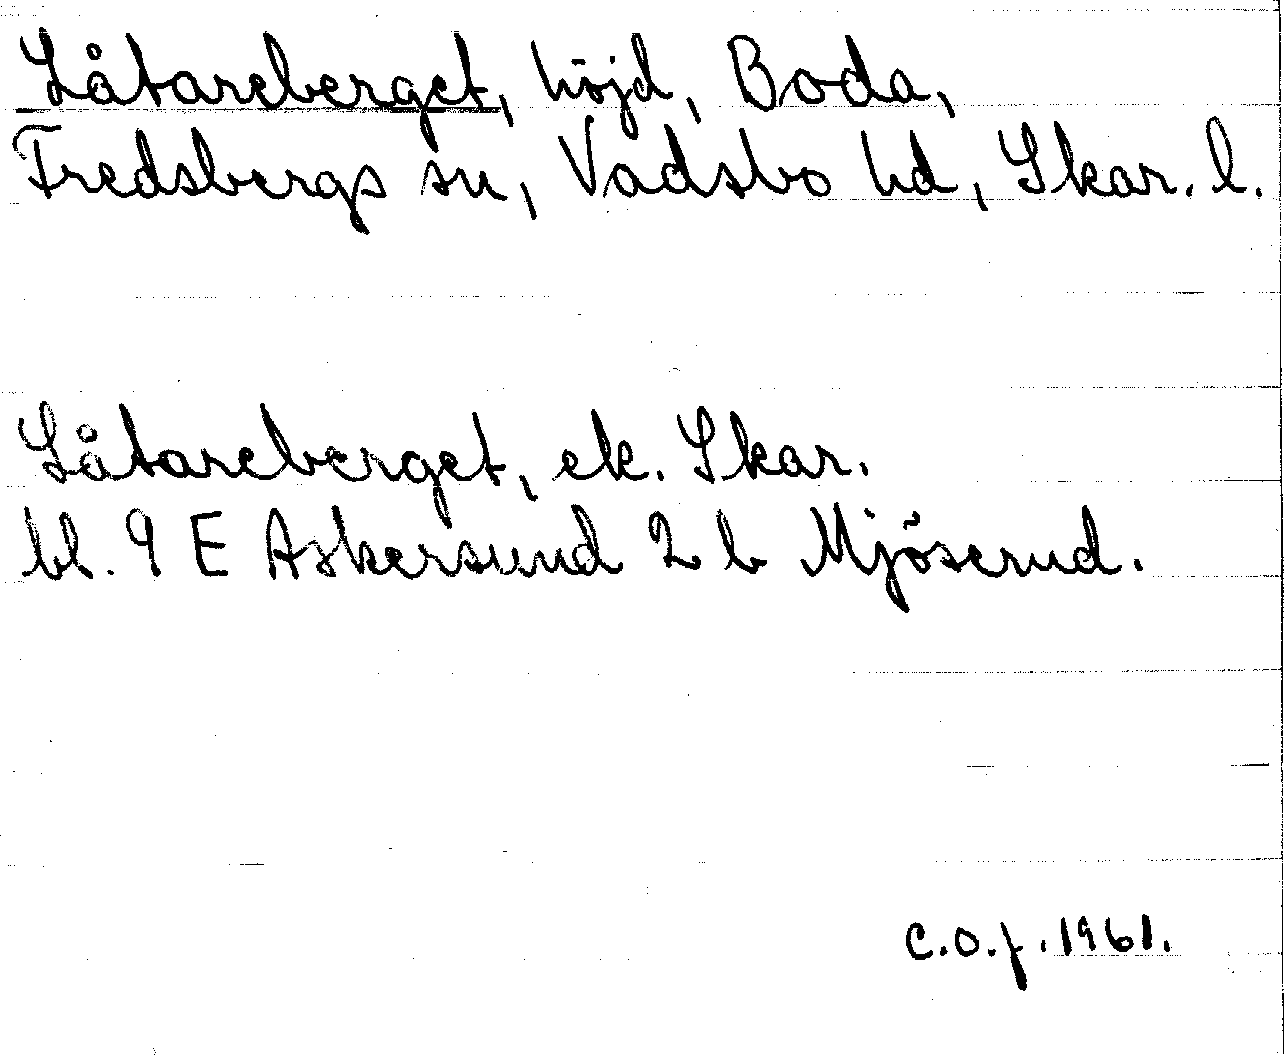 Låtareberget, höjd, Boda,
Fredsbergs sn, Vadsbo hd, Skar. l.
Låtareberget, ek. Skar.
bl. 9 E Askersund 2 b Mjöserud.
C.O.f. 1961.